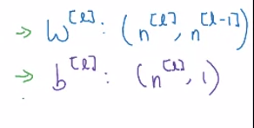 → W^[l]: (n^[l], n^[l-1])
→ b^[l]: (n^[l], 1)